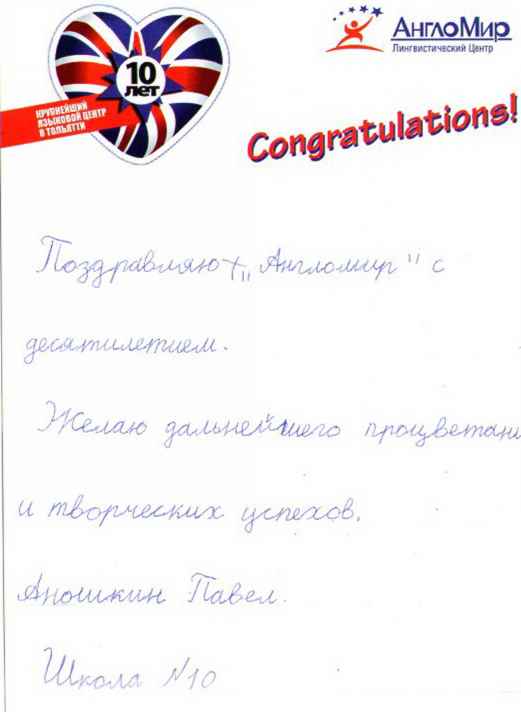 10
лет
КРУПНЕЙШИЙ
ЯЗЫКОВОЙ ЦЕНТР
В ТОЛЬЯТТИ
АнглоМир
Лингвистический Центр
Congratulations!
Поздравляю „Англомир" с
десятилетием.
Желаю дальнейшего процветани
и творческих успехов.
Аношкин Павел.
Школа №10